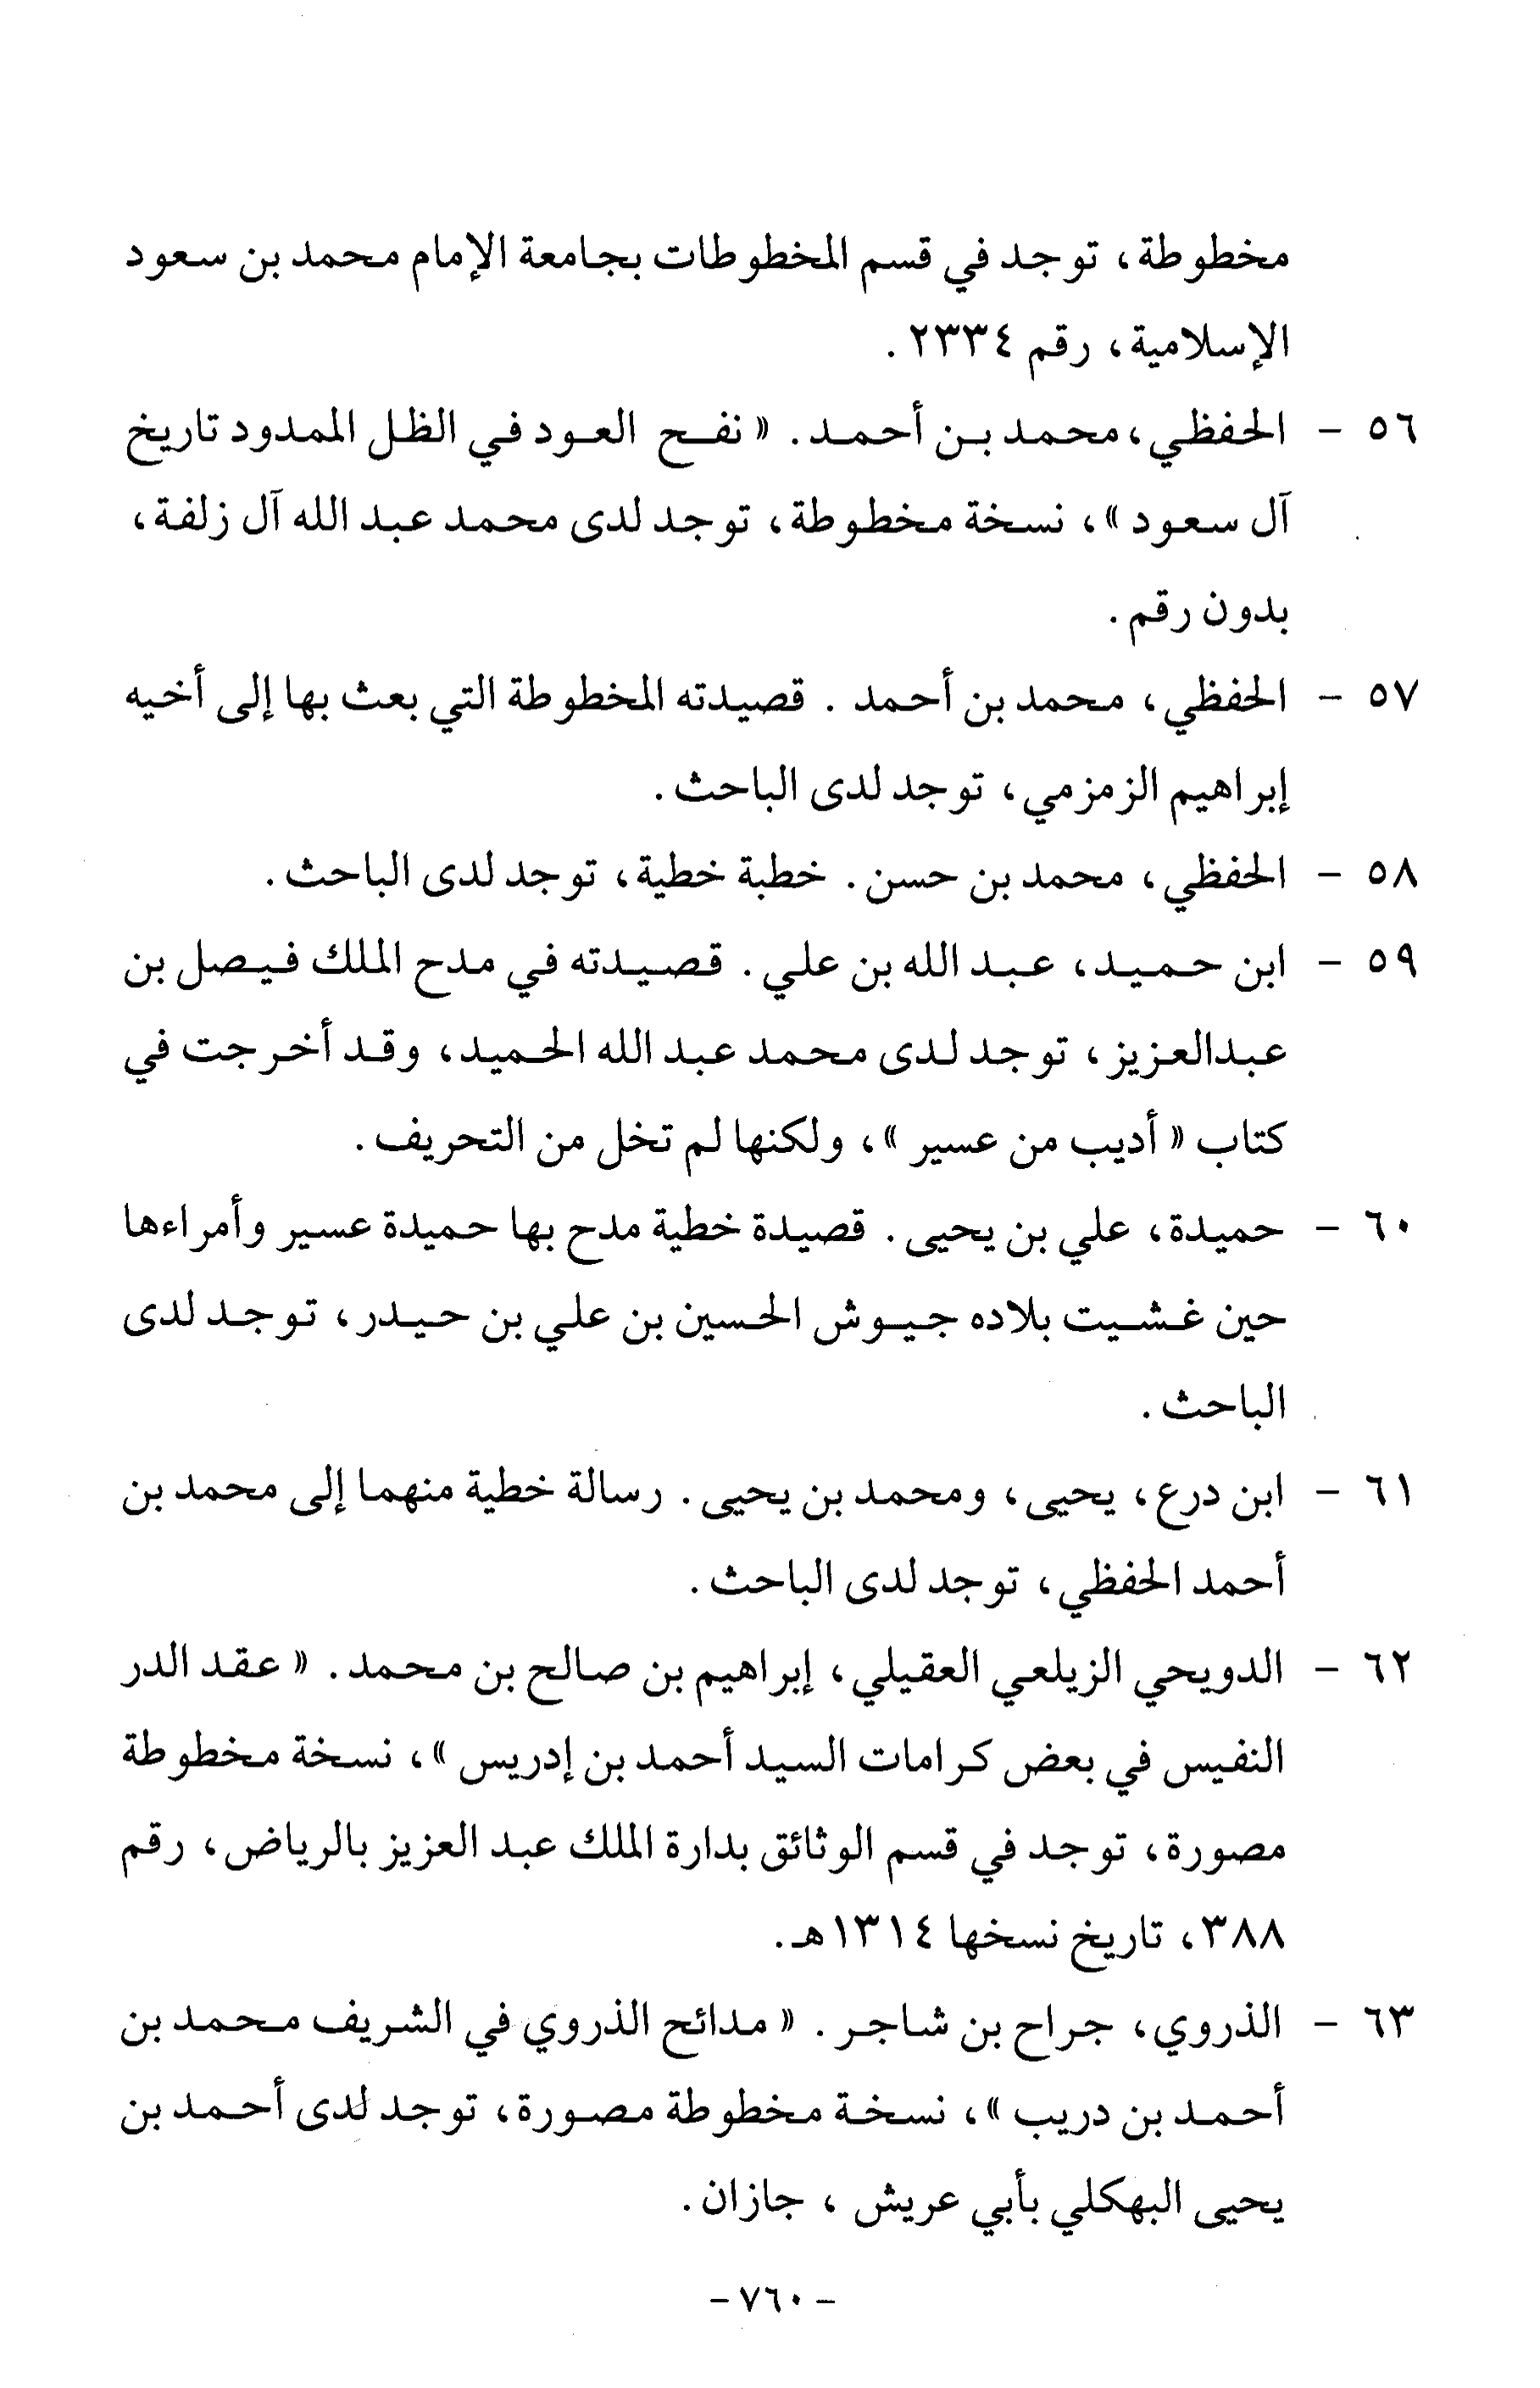 مخطوطة، توجد في قسم المخطوطات بجامعة الإمام محمد بن سعود
الإسلامية، رقم ٢٣٣٤ .
٥٦ - الحفظي، محمد بن أحمد. « نفح العود في الظل الممدود تاريخ
آل سعود »، نسخة مخطوطة، توجد لدى محمد عبد الله آل زلفة،
بدون رقم .
٥٧ - الحفظي، محمد بن أحمد . قصيدته المخطوطة التي بعث بها إلى أخيه
إبراهيم الزمزمي، توجد لدى الباحث .
٥٨ - الحفظي، محمد بن حسن. خطبة خطية، توجد لدى الباحث .
٥٩ - ابن حميد، عبد الله بن علي. قصيدته في مدح الملك فيصل بن
عبدالعزيز، توجد لدى محمد عبد الله الحميد، وقد أخرجت في
كتاب « أديب من عسير »، ولكنها لم تخل من التحريف .
٦٠ - حميدة، علي بن يحيى. قصيدة خطية مدح بها حميدة عسير وأمراءها
حين غشيت بلاده جيوش الحسين بن علي بن حيدر، توجد لدى
الباحث .
٦١ - ابن درع، يحيى، ومحمد بن يحيى. رسالة خطية منهما إلى محمد بن
أحمد الحفظي، توجد لدى الباحث .
٦٢ - الدويحي الزيلعي العقيلي، إبراهيم بن صالح بن محمد. « عقد الدر
النفيس في بعض كرامات السيد أحمد بن إدريس »، نسخة مخطوطة
مصورة، توجد في قسم الوثائق بدارة الملك عبد العزيز بالرياض، رقم
٣٨٨، تاريخ نسخها ١٣١٤هـ.
٦٣ - الذروي، جراح بن شاجر. « مدائح الذروي في الشريف محمد بن
أحمد بن دريب »، نسخة مخطوطة مصورة، توجد لدى أحمد بن
يحيى البهكلي بأبي عريش ، جازان.
- ٧٦٠ -